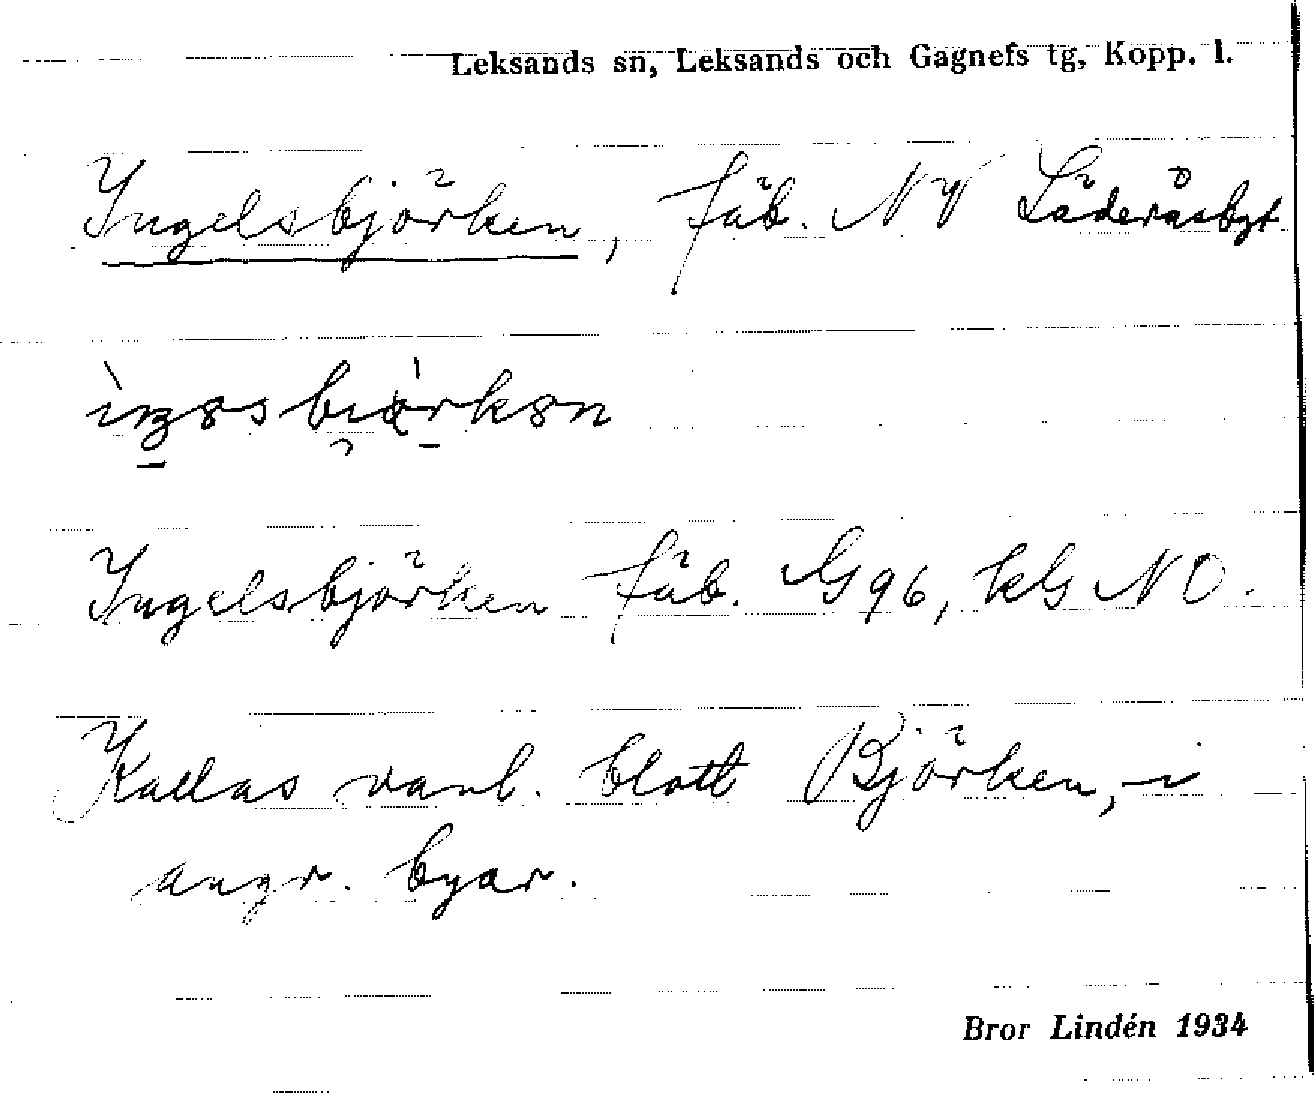 Leksands sn, Leksands och Gagnefs tg, Kopp. l.
Ingelsbjörken, fäb. NV Läderåsbyt
Ingelsbjörken fäb. G96, kG NO.
Kallas vanl. blott Björken, i
angr. byar.
Bror Lindén 1934